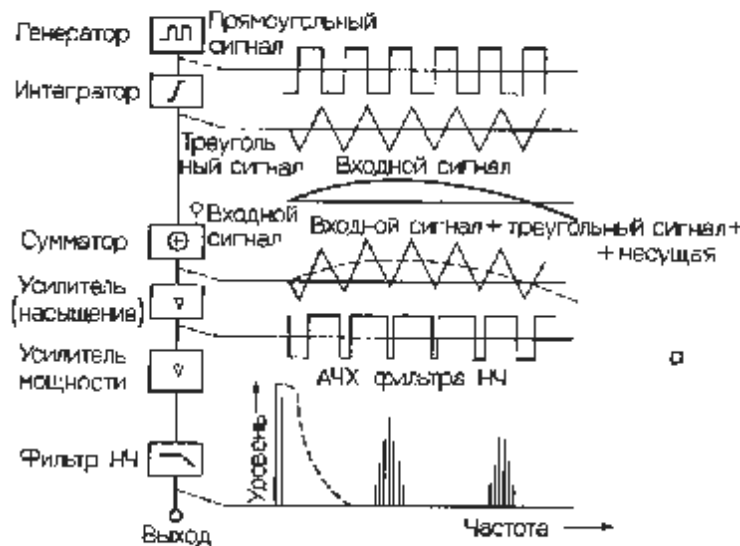 Генератор
Прямоугольный
сигнал
Интегратор
Треуголь
ный сигнал
Входной сигнал
Входной
сигнал
Сумматор
Входной сигнал + треугольный сигнал +
+ несущая
Усилитель
(насыщение)
Усилитель
мощности
АЧХ фильтра НЧ
Фильтр НЧ
Уровень
Частота
Выход